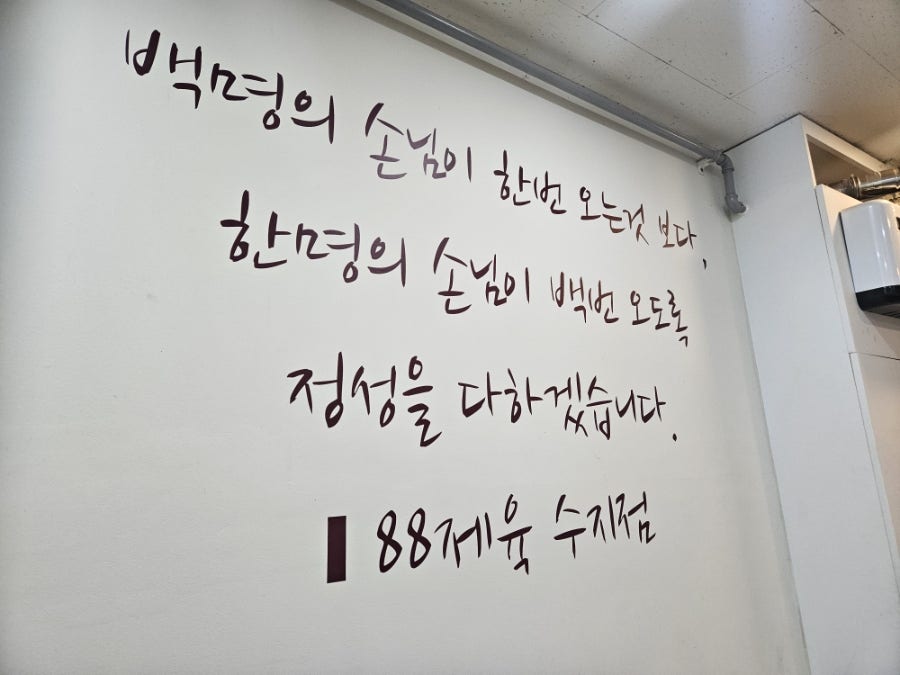 백명의 손님이 한번 오는것 보다,
한명의 손님이 백번 오도록
정성을 다하겠습니다.
88제육 수지점